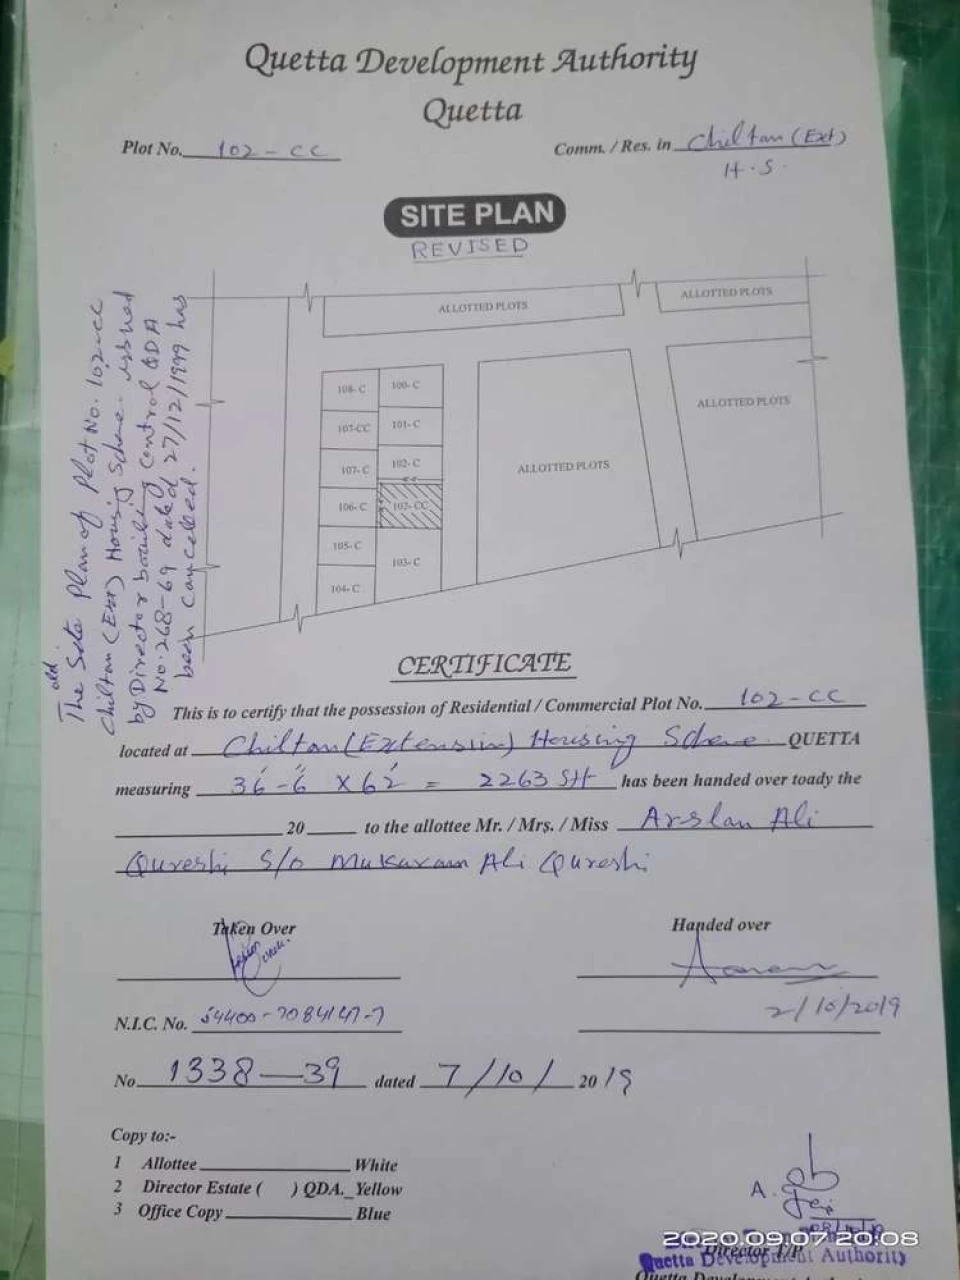 Quetta Development Authority
Quetta
Plot No. 102-CC
Comm. / Res. in Chiltan (Ext)
H.S.
SITE PLAN
REVISED
ALLOTTED PLOTS
ALLOTTED PLOTS
108- C
100- C
107-CC
101- C
107- C
102- C
106- C
102- CC
105- C
103- C
104- C
ALLOTTED PLOTS
ALLOTTED PLOTS
old
The Site Plan of Plot No. 102-CC
Chiltan (Ext) Housing Scheme issued
by Director building Control QDA
No. 268-69 dated 27/12/1999 has
been Cancelled.
CERTIFICATE
This is to certify that the possession of Residential / Commercial Plot No. 102-CC
located at Chiltan (Extension) Housing Scheme QUETTA
measuring 36'-6" x 62' = 2263 Sft has been handed over toady the
20 to the allottee Mr. / Mrs. / Miss Arslan Ali
Qureshi S/o Mukaram Ali Qureshi
Taken Over
Handed over
2/10/2019
N.I.C. No. 54400-7084147-7
No. 1338—39 dated 7/10/ 2019
Copy to:-
1 Allottee White
2 Director Estate ( ) QDA. Yellow
3 Office Copy Blue
A.
2020.09.07 20:08
Director T/P
Quetta Development Authority